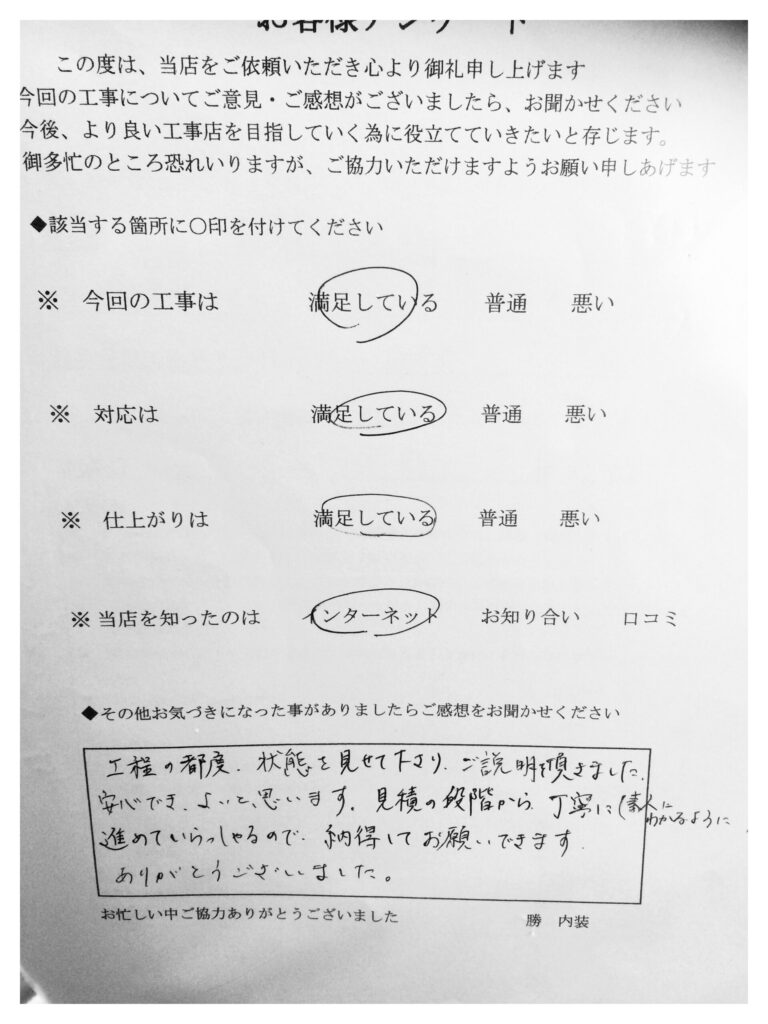 お客様アンケート
この度は、当店をご依頼いただき心より御礼申し上げます
今回の工事についてご意見・ご感想がございましたら、お聞かせください
今後、より良い工事店を目指していく為に役立てていきたいと存じます。
御多忙のところ恐れいりますが、ご協力いただけますようお願い申しあげます
◆該当する箇所に〇印を付けてください
※ 今回の工事は 満足している 普通 悪い
※ 対応は 満足している 普通 悪い
※ 仕上がりは 満足している 普通 悪い
※ 当店を知ったのは インターネット お知り合い 口コミ
◆その他お気づきになった事がありましたらご感想をお聞かせください
工程の都度、状態を見せて下さり、ご説明を頂きました。
安心でき、よいと思います。見積の段階から 丁寧に(素人に
わかるように
進めていらっしゃるので、納得してお願いできます。
ありがとうございました。
お忙しい中ご協力ありがとうございました 勝 内装